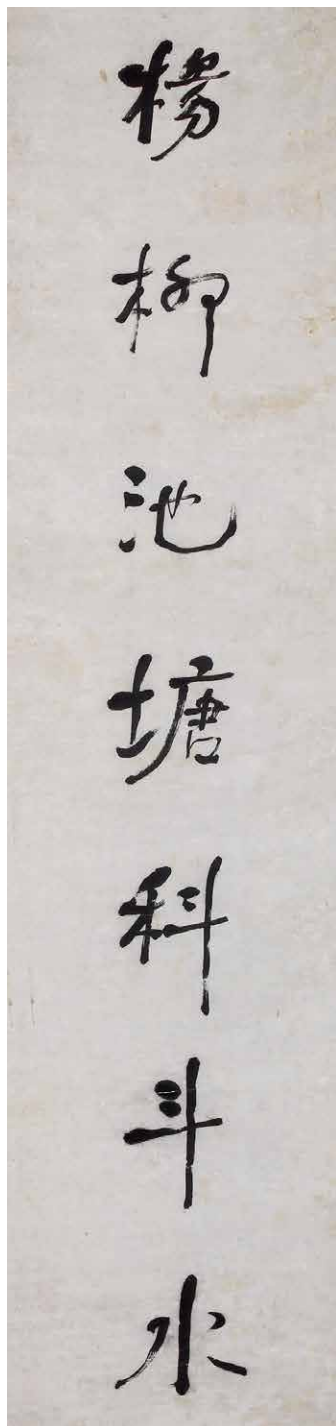 楊柳池塘科斗水